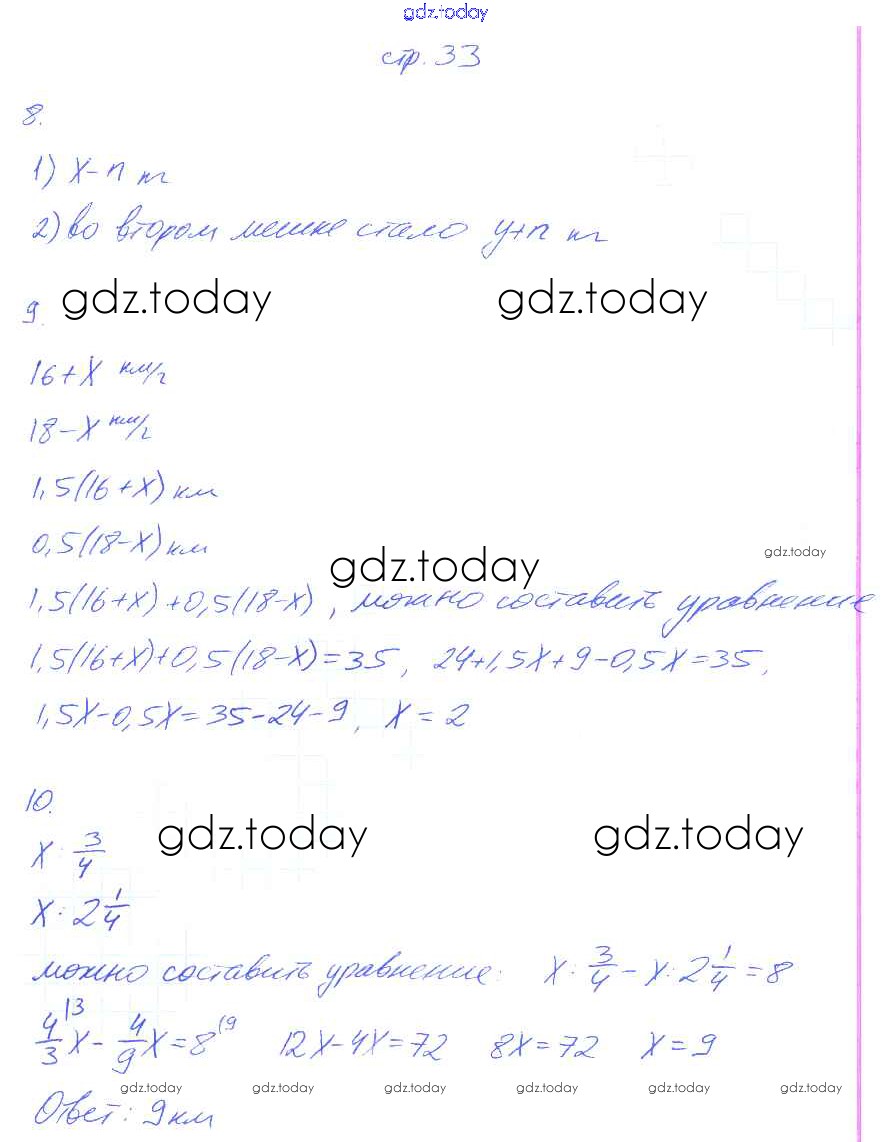 gdz.today
стр. 33
8.
1) x-n кг
2) во втором мешке стало y+n кг
gdz.today gdz.today
9.
16+x км/г
18-x км/г
1,5(16+x) км
0,5(18-x) км
gdz.today gdz.today
1,5(16+x)+0,5(18-x), можно составить уравнение
1,5(16+x)+0,5(18-x)=35, 24+1,5x+9-0,5x=35,
1,5x-0,5x=35-24-9, x=2
10.
gdz.today gdz.today
x : 3/4
x : 2 1/4
можно составить уравнение: x : 3/4 - x : 2 1/4 = 8
4/3 |3 x - 4/9 x = 8 |9 12x-4x=72 8x=72 x=9
gdz.today gdz.today gdz.today gdz.today gdz.today gdz.today
Ответ: 9 км